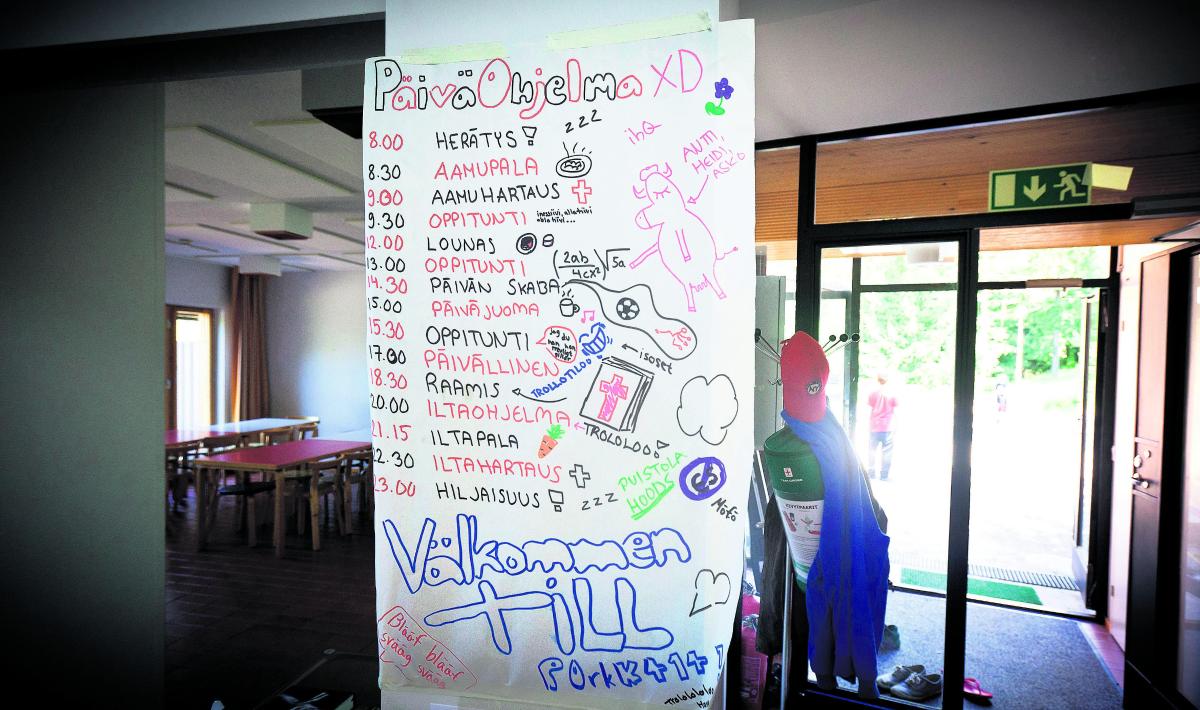 PäiväOhjelma XD
8.00 HERÄTYS! zzz
ihQ
8.30 AAMUPALA
ANTTI, HEIDI, ASKO
9.00 AAMUHARTAUS
9.30 OPPITUNTI
12.00 LOUNAS
13.00 OPPITUNTI (2ab/4cx²)√5a
14.30 PÄIVÄN SKABA
15.00 PÄIVÄJUOMA
15.30 OPPITUNTI
isoset
17.00 PÄIVÄLLINEN
TROLLOTILOO
18.30 RAAMIS
20.00 ILTAOHJELMA
TROLOLOO!
21.15 ILTAPALA
22.30 ILTAHARTAUS
PUISTOLA
HOODS
23.00 HILJAISUUS! zzz
Välkommen
TILL
POrKK414
Blääf blääf
svääg svääg